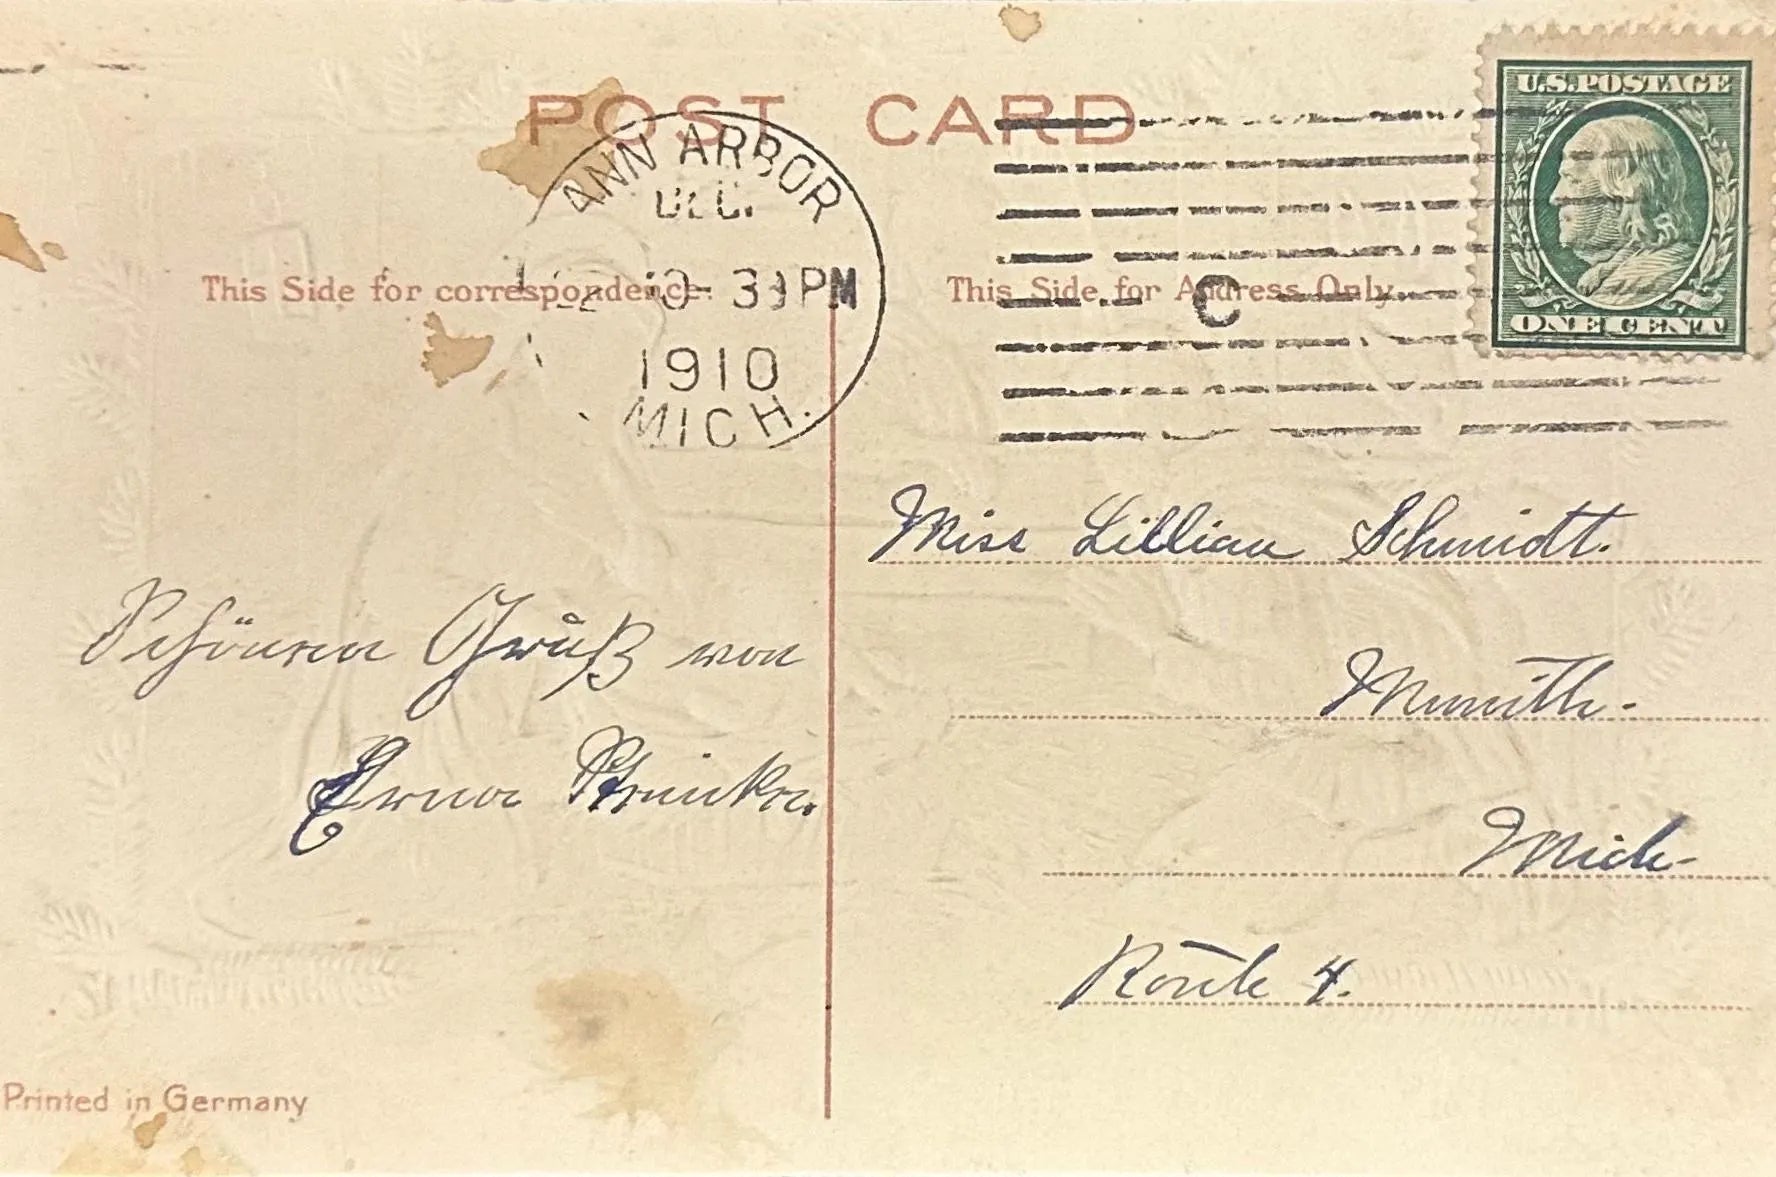 POST CARD
ANN ARBOR
DEC.
3 PM
1910
MICH.
C
U.S.POSTAGE
ONE CENT
This Side for correspondence.
This Side for Address Only.
Miss Lillian Schmidt.
Munith.
Mich.
Route 4.
Schönen Gruß von
Erna
Printed in Germany